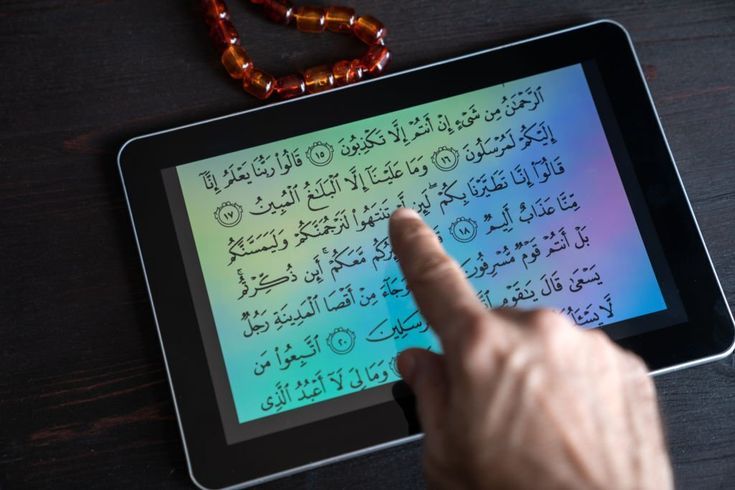 ٱلرَّحْمَٰنُ مِن شَىْءٍ إِنْ أَنتُمْ إِلَّا تَكْذِبُونَ ١٥ قَالُوا۟ رَبُّنَا يَعْلَمُ إِنَّآ
إِلَيْكُمْ لَمُرْسَلُونَ ١٦ وَمَا عَلَيْنَآ إِلَّا ٱلْبَلَٰغُ ٱلْمُبِينُ ١٧
قَالُوٓا۟ إِنَّا تَطَيَّرْنَا بِكُمْ ۖ لَئِن تَنتَهُوا۟ لَنَرْجُمَنَّكُمْ وَلَيَمَسَّنَّكُم
مِّنَّا عَذَابٌ أَلِيمٌ ١٨ مَّعَكُمْ ۚ أَئِن ذُكِّرْتُم ۚ
بَلْ أَنتُمْ قَوْمٌ مُّسْرِفُونَ مِنْ أَقْصَا ٱلْمَدِينَةِ رَجُلٌ
يَسْعَىٰ قَالَ يَٰقَوْمِ ٢٠ ٱتَّبِعُوا۟ مَن
لَّا وَمَا لِىَ لَآ أَعْبُدُ ٱلَّذِى